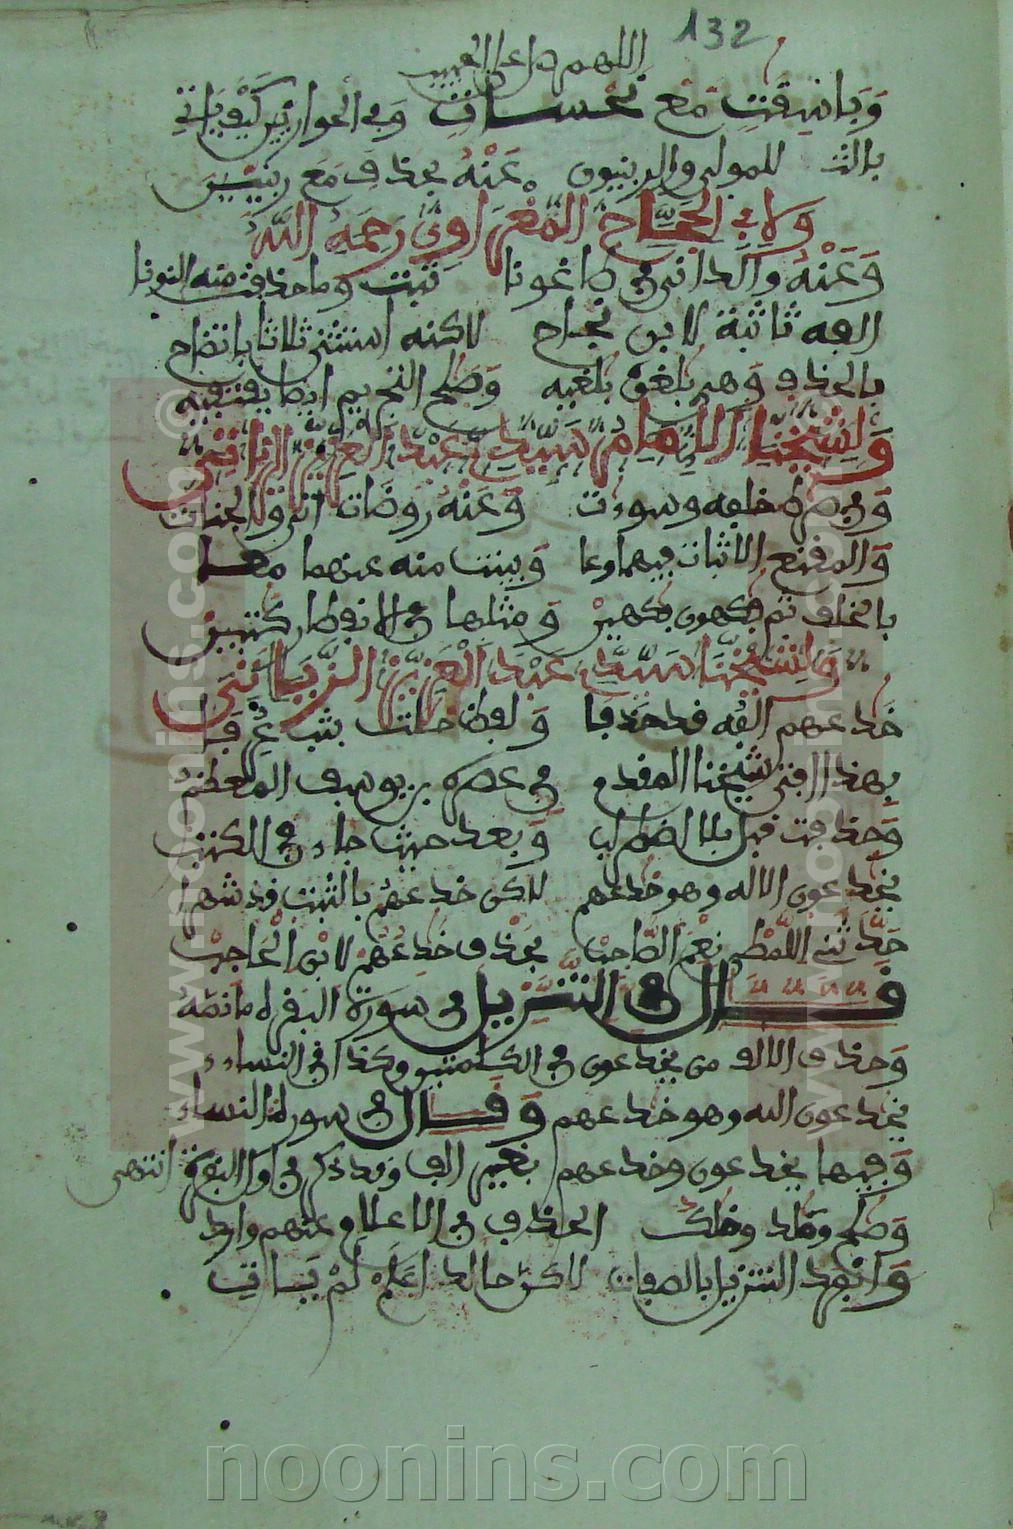 132
اللهم صل على الحبيب
وباسقت مع نحسات وفي الحواريين كيف ياتي
بالث للمولي والربنيون عنه بحذف مع ربنيين
ولابي الحجاج المغراوي رحمه الله
وعنه والداني في طاغونا تثبت وما حذفت منه النونا
الفه ثابتة لابن نجاح لاكنه استثنى ثلاثا باتضاح
بالحذف وهي بلغ بلغيه وصلح التحريم ايضا يقتفيه
ولشيخنا الامام سيدي عبد العزيز الزيانني
وفي صراط خلفه وسوءات وعنه روضات اتى والجنات
والمقنع الاثبات فيهما وعا وبينت منه عنهما معا
بالخلف ثم فكهون فكهين ومثلها في الانفطار كتبين
ولشيخنا سيدي عبد العزيز الزيانني
خدعهم الفه قد حذفا ولفظ حلت بثبت عرفا
بهذا افتى شيخنا المقدم في عصره بن يوسف المعظم
وحذفت قبل بلا اضطراب وبعد حيث جاء في الكتب
يخدعون الاله وهو خدعهم لاكن خدعهم بالثبت قد شهر
حدثني اللمطي نعم الصاحب بحذف خدعهم لابن الحاجب
قال في التنزيل في سورة البقرة ما نصه
وحذف الالف من يخدعون في الكلمتين وكذا في النساء
يخدعون الله وهو خدعهم وقال في سورة النساء
وفيها يخدعون وخدعهم بغير الف وقد ذكر في اول البقرة انتهى
وصلح وقلد وملك الحذف في الاعلام عنهم وارد
وانفرد التنزيل بالصفات لاكن خالد اعلم لم يات
www.noonins.com ©
www.noonins.com ©
noonins.com